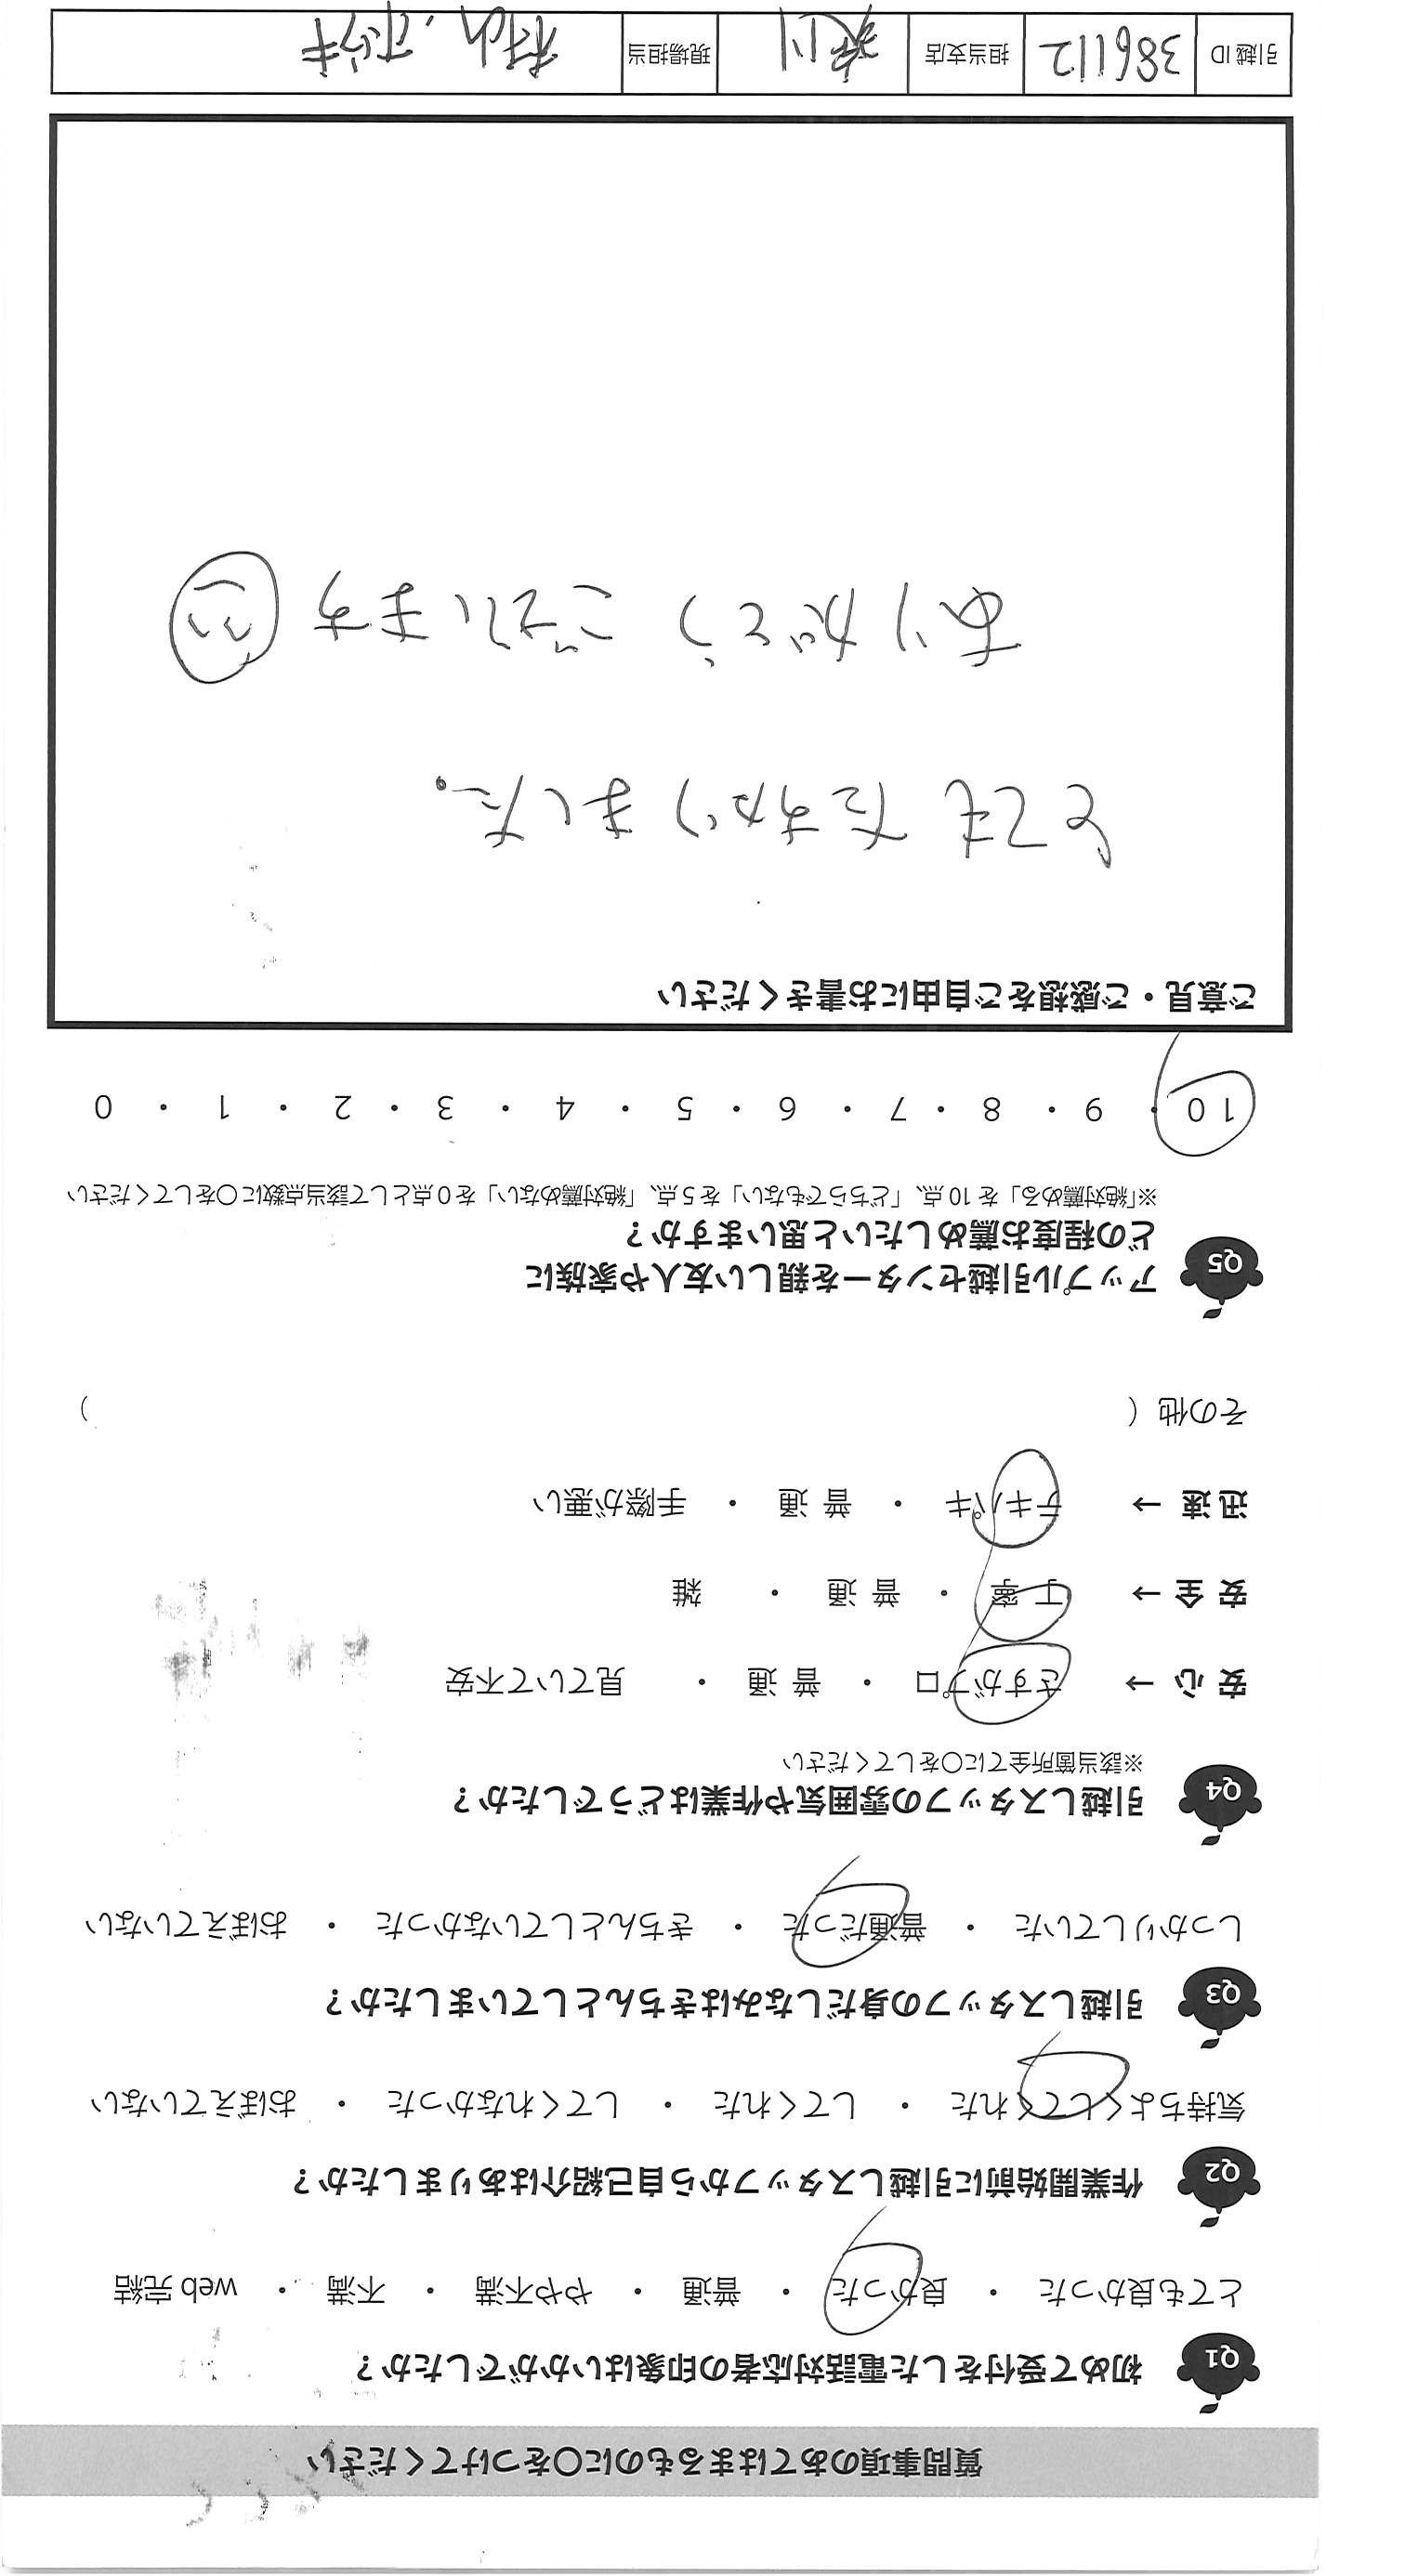 質問事項のあてはまるものに○をつけてください
Q1 初めて受付をした電話対応者の印象はいかがでしたか？
とても良かった ・ 良かった ・ 普通 ・ やや不満 ・ 不満 ・ web 完結
Q2 作業開始前に引越しスタッフから自己紹介はありましたか？
気持ちよくしてくれた ・ してくれた ・ してくれなかった ・ おぼえていない
Q3 引越しスタッフの身だしなみはきちんとしていましたか？
しっかりしていた ・ 普通だった ・ きちんとしていなかった ・ おぼえていない
Q4 引越しスタッフの雰囲気や作業はどうでしたか？
※該当箇所全てに○をしてください
安心→ さすがプロ ・ 普通 ・ 見ていて不安
安全→ 丁寧 ・ 普通 ・ 雑
迅速→ テキパキ ・ 普通 ・ 手際が悪い
その他（ ）
Q5 アップル引越センターを親しい友人や家族に
どの程度お薦めしたいと思いますか？
※「絶対薦める」を10点、「どちらでもない」を5点、「絶対薦めない」を0点として該当点数に○をしてください
10 ・ 9 ・ 8 ・ 7 ・ 6 ・ 5 ・ 4 ・ 3 ・ 2 ・ 1 ・ 0
ご意見・ご感想をご自由にお書きください
とても たすかりました。
ありがとう ございます
引越ID 386112 担当支店 現場担当